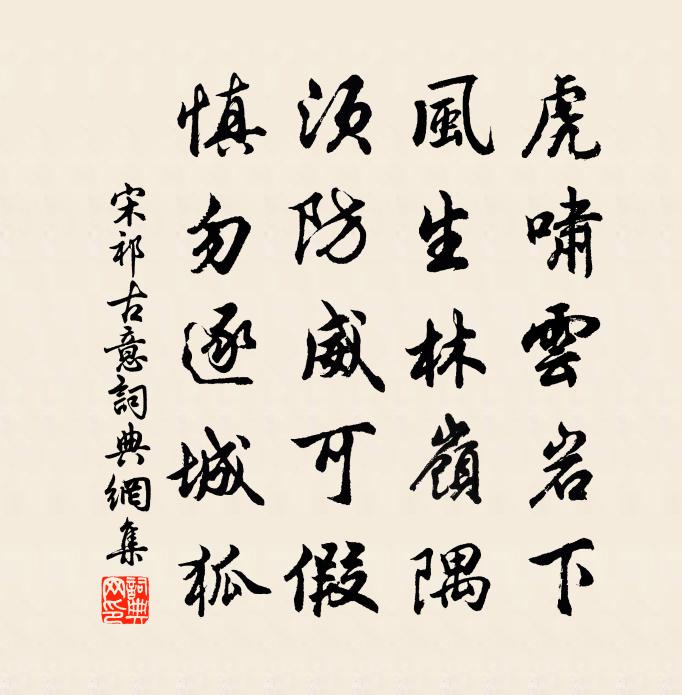 虎嘯雲岩下
風生林嶺隅
須防威可假
慎勿逐城狐
宋祁古意詞典網集
詞典網印